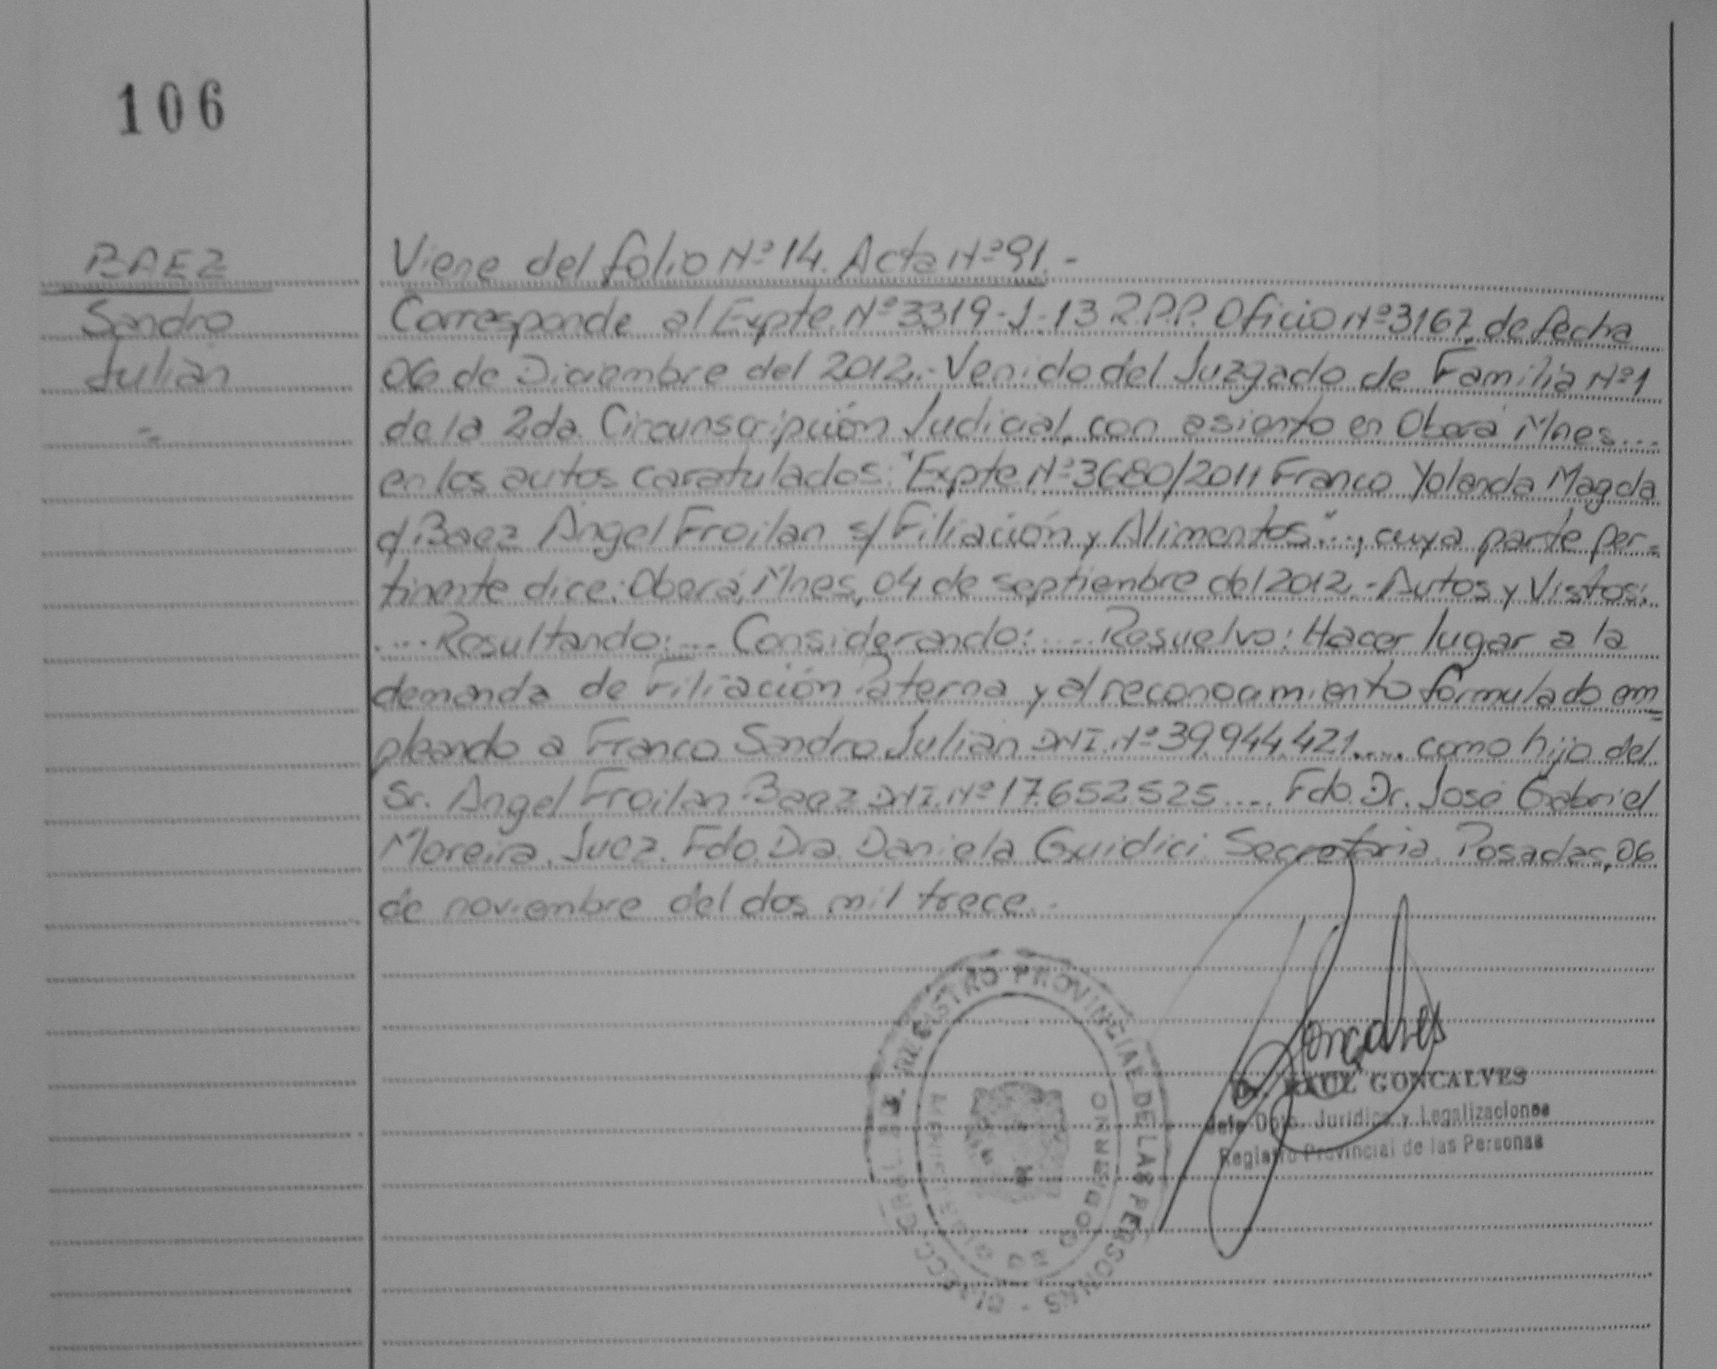 106
BAEZ
Sandro
Julian
Viene del folio Nº 14. Acta Nº 91.-
Corresponde al Expte. Nº 3319-J-13 R.P.P. Oficio Nº 3167, de fecha
06 de Diciembre del 2012.- Venido del Juzgado de Familia Nº 1
de la 2da. Circunscripción Judicial, con asiento en Oberá Mnes...
en los autos caratulados: "Expte Nº 3680/2011 Franco Yolanda Magda
c/ Baez Angel Froilan s/ Filiación y Alimentos"..., cuya parte per=
tinente dice: Oberá, Mnes, 04 de septiembre del 2012.- Autos y Vistos:
....Resultando:.... Considerando:.... Resuelvo: Hacer lugar a la
demanda de Filiación Paterna y al reconocimiento formulado em=
pleando a Franco Sandro Julian DNI. Nº 39.944.421..... como hijo del
Sr. Angel Froilan Baez DNI. Nº 17.652.525.... Fdo. Dr. José Gabriel
Moreira. Juez. Fdo. Dra. Daniela Guidici. Secretaria. Posadas, 06
de noviembre del dos mil trece.-
REGISTRO PROVINCIAL DE LAS PERSONAS
Gonçalves
Dr. RAUL GONCALVES
Jefe Dpto. Jurídico y Legalizaciones
Registro Provincial de las Personas